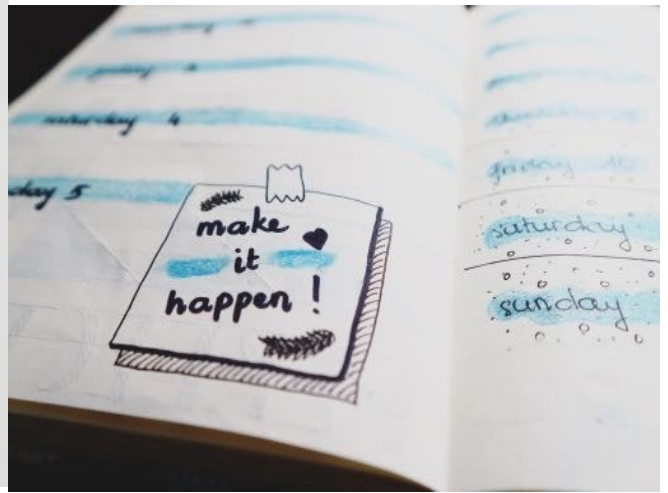 friday 3
saturday 4
day 5
make
it
happen!
friday
saturday
sunday